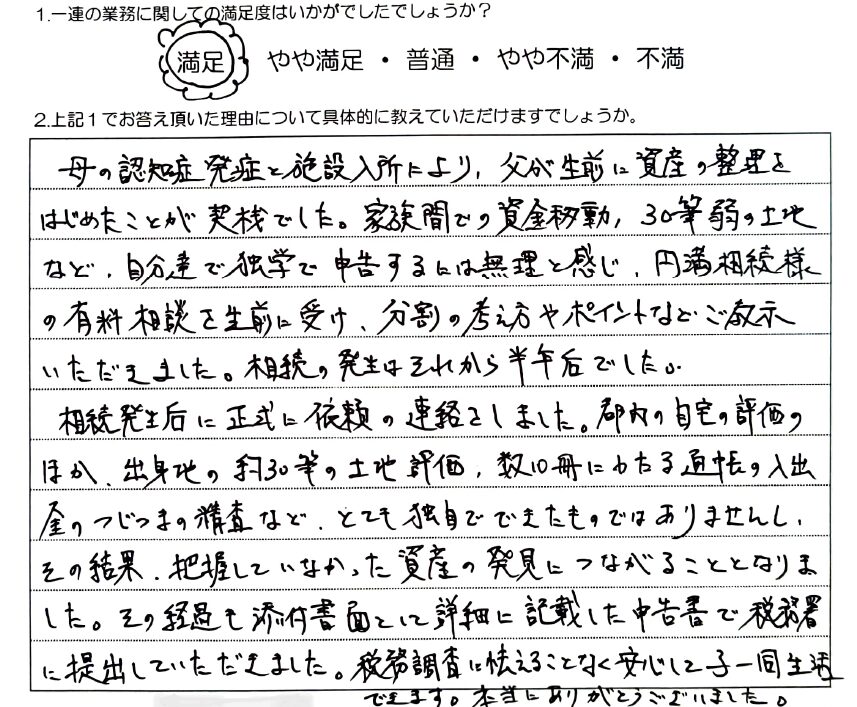 1.一連の業務に関しての満足度はいかがでしたでしょうか？
満足 やや満足 ・ 普通 ・ やや不満 ・ 不満
2.上記１でお答え頂いた理由について具体的に教えていただけますでしょうか。
母の認知症発症と施設入所により，父が生前に資産の整理を
はじめたことが契機でした。家族間での資金移動，30筆弱の土地
など，自分達で独学で申告するには無理と感じ，円満相続様
の有料相談を生前に受け、分割の考え方やポイントなどご教示
いただきました。相続の発生はそれから半年后でした。
相続発生后に正式に依頼の連絡をしました。都内の自宅の評価の
ほか、出身地の約30筆の土地評価，数10冊にわたる通帳の入出
金のつじつまの精査など、とても独自でできたものではありませんし，
その結果，把握していなかった資産の発見につながることとなりま
した。その経過も添付書面として詳細に記載した申告書で税務署
に提出していただきました。税務調査に怯えることなく安心して子一同生活
できます。本当にありがとうございました。